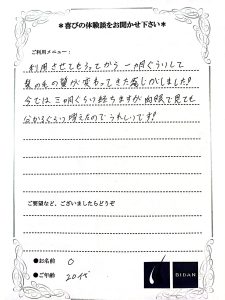 *喜びの体験談をお聞かせ下さい*
ご利用メニュー：
利用させてもらってから一ヶ月ぐらいして
髪の毛の質が変わってきた感じがしました!
今では三ヶ月ぐらい経ちますが肉眼で見ても
分かるぐらい増えたのでうれしいです!
ご要望など、ございましたらどうぞ
●お名前 O
●ご年齢 20代
BIDAN